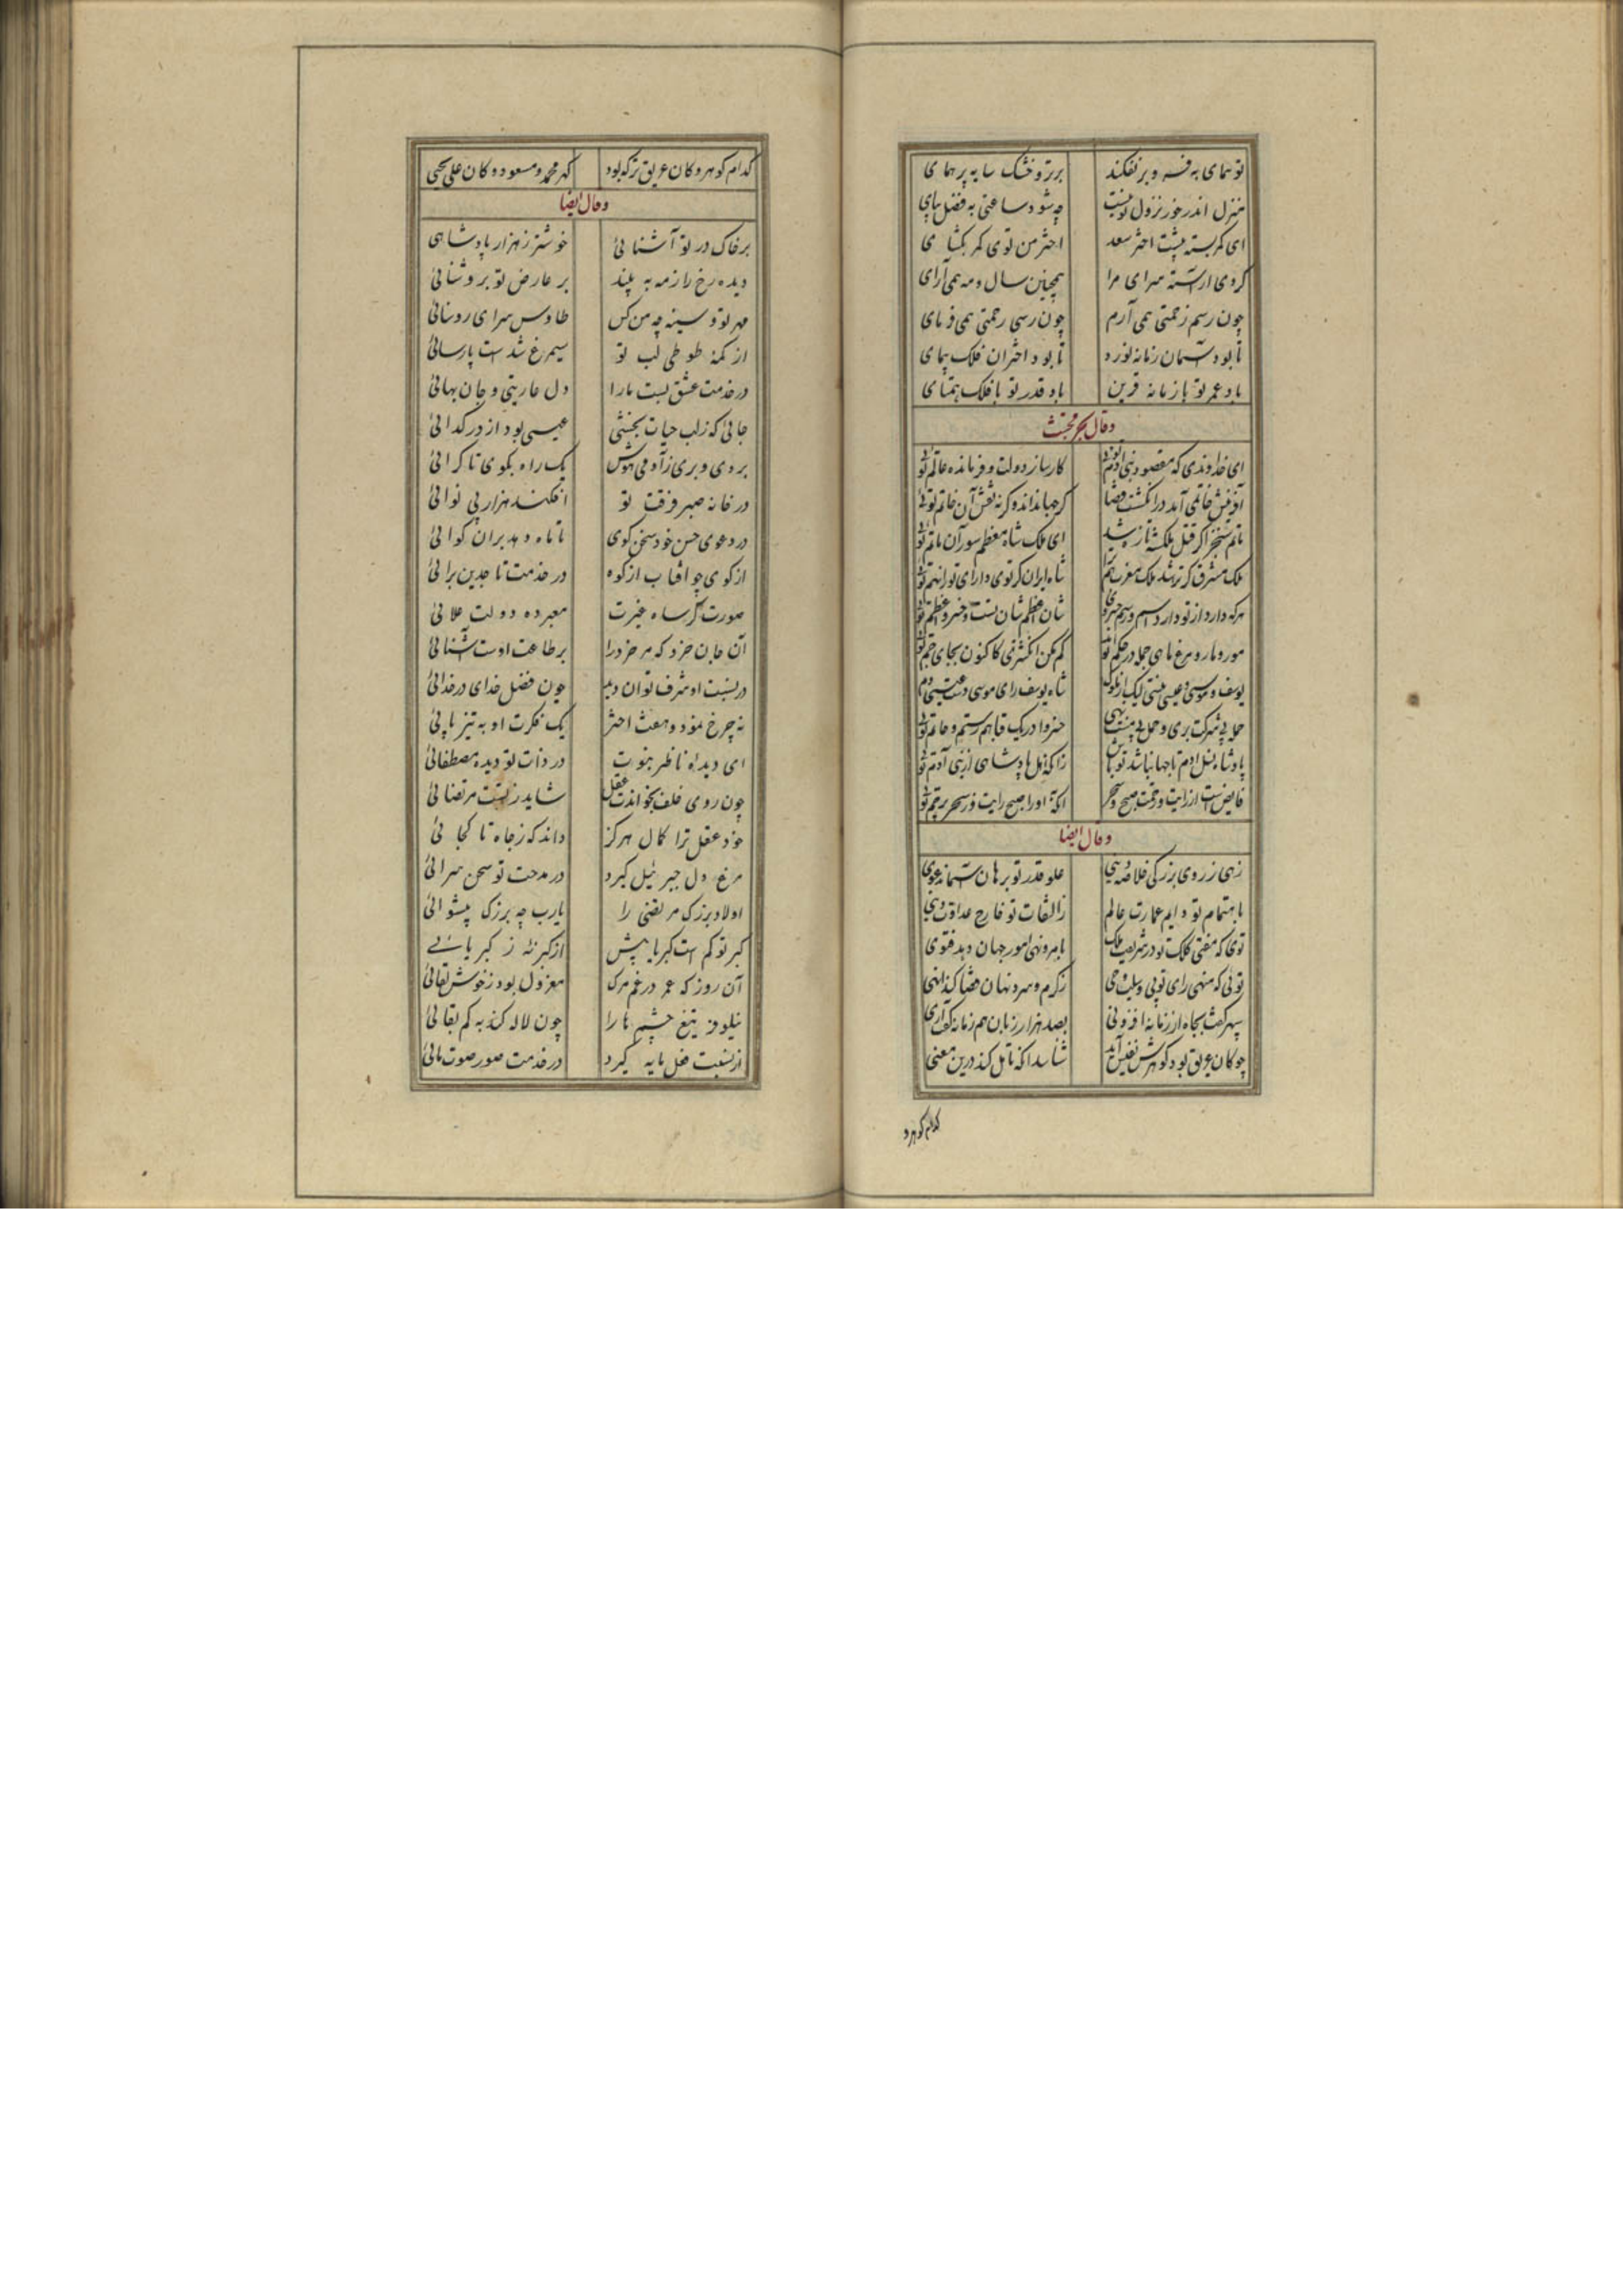 تو همای به فر و بر نفکند برتر و خشک سایه پر همای
منزل اندر خور نزول تو نیست چه شود ساعتی به فضل بپای
ای کمر بسته پیشت اختر سعد اختر من توی کمر بگشای
کردی آراسته سرای مرا همچنین سال و مه همی آرای
چون رسم زحمتی همی آرم چون رسی رحمتی همی فرمای
تا بود آسمان زمانه نورد تا بود اختران فلک پیمای
باد عمر تو با زمانه قرین باد قدر تو با فلک همتای
وقال
ای خداوندی که مقصود بنی آدم توئی کارساز دولت و فرمانده عالم توئی
آفرینش خاتمی آمد در انگشت قضا گر جهانداند و گر نه نقش آن خاتم توئی
ماتم سنجر اگر قتل ملکشه تازه شد ای ملک شاه معظم سور آن ماتم توئی
ملک مشرق گر ترا شد ملک مغرب هم شاه ایران گر توی دارای توران هم توئی
هرکه دارد از تو دارد اسم و رسم خسروی شان اعظم شان تست و خسرو اعظم توئی
مور و مار و مرغ و ماهی جمله در حکم تواند گم مکن انگشتری کاکنون بجای جم توئی
یوسف و موسی و عیسی نیستی لیک از ملوک شاه یوسف رای موسی دست عیسی دم توئی
حمله بی شرکت بری و حمل بی منت نهی خسروا در یک قبا هم رستم و حاتم توئی
پادشاه نسل آدم تا جهان باشد تو باش زانکه اهل پادشاهی از بنی آدم توئی
فایض است از رایت و رقمت صبح و سحر انکه او را صبح رایت وز سحر پرچم توئی
وقال ایضا
زهی ز روی بزرگی خلاصه دینی علو قدر تو برهان آسمان دعوی
باهتمام تو دایم عمارت عالم ز التفات تو خارج عداوت دنیی
تو آنکه مفتی کلک تو در شریعت ملک بامر و نهی امور جهان دهد فتوی
توئی که منهی رای تو بی وسیلت وحی ز گرم و سرد نهان قضا کند انهی
سپهر گفت بجاه از زمانه افزونی بصد هزار زبان هم زمانه گفت آری
چو کان عریق بود گوهرش نفیس آید شناسد آنکه تامل کند درین معنی
کدام گوهر و
کدام گوهر و کان عریق تر که بود گهر محمد و مسعود و کان علی یحیی
وقال ایضا
بر خاک در تو آشنائی خوشتر ز هزار پادشاهی
دیده رخ راز مه به بیند بر عارض تو بروشنائی
مهر تو و سینه چه من کس طاوس سرای روستائی
از کمهٔ طوطی لب تو سیمرغ شدست پارسائی
در خدمت عشق تست ما را دل عاریتی و جان بهائی
جائی که ز لب حیات بخشی عیسی بود از در گدائی
بردی و بری ز آدمی هوش یک راه بکوی تا کرائی
در خانه صبر فرقت تو افکند هزار بی نوائی
در دعوی حسن خود سخن گوی تا ماه دهد بران گوائی
از کوی چو آفتاب از کوه در خدمت تا جدین برائی
صورتگر ساه غیرت معبرده دولت علائی
آن جان خرد که مر خرد را بر طاعت اوست آشنائی
در نسبت او شرف توان دید چون فضل خدای در خدائی
نه چرخ نمود و هفت اختر یک فکرت او به تیز پائی
ای دیده ناظر نبوت در ذات تو دیده مصطفائی
چون روی خلف بخواندت عقل شاید ز نیت مرتضائی
خود عقل ترا کمال هرگز داند که ز جاه تا کجائی
مرغ دل جبرئیل گیرد در مدحت تو سخن سرائی
اولاد بزرگ مرتضی را یارب چه بزرگ پیشوائی
کبر تو کم است کبریا بیش از کبر نهٔ ز کبریائی
آن روز که عمر در غم مرگ معزول بود ز خوش لقائی
نیلوفر تیغ چشم ها را چون لاله کند به کم بقائی
از نسبت فعل مایه گیرد در خدمت صور صوت مائی